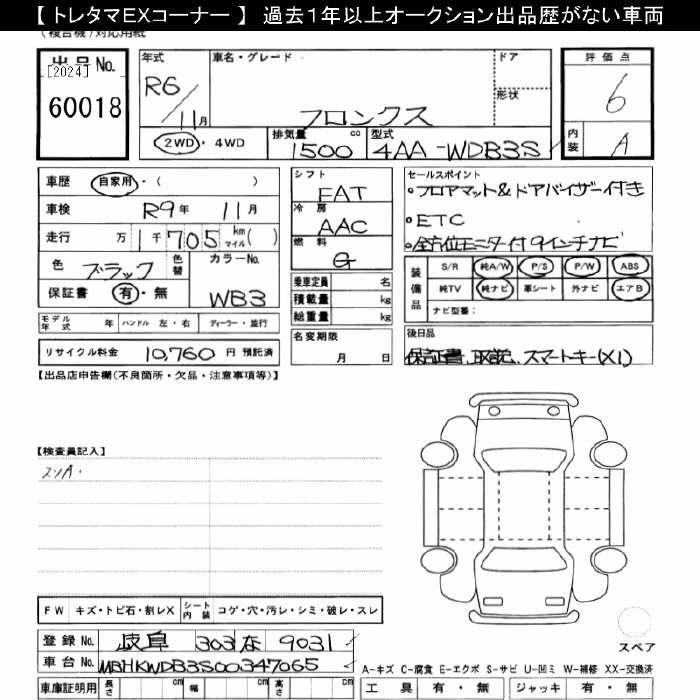 【 トレタマEXコーナー 】 過去1年以上オークション出品歴がない車両
(複合機)対応用紙
出品No.
[2024]
60018
年式
R6/11月
車名・グレード
フロンクス
ドア
形状
評価点
6
内装
A
2WD・4WD
排気量 cc
1500
型式
4AA-WDB3S
車歴 自家用・( )
車検 R9年 11月
走行 万 1千705 km マイル( )
色 ブラック 色替
カラーNo. WB3
保証書 有・無
モデル年式 年 ハンドル 左・右 ディーラー・並行
リサイクル料金 10,760 円 預託済
シフト
FAT
冷房
AAC
燃料
G
乗車定員 名
積載量 kg
総重量 kg
名変期限
月 日
セールスポイント
・フロアマット&ドアバイザー付き
・ETC
・全方位モニター付9インチナビ
装備品
S/R 純A/W P/S P/W ABS
純TV 純ナビ 革シート 外ナビ エアB
ナビ型番:
後日品
保証書、取説、スマートキー(X1)
【出品店申告欄(不良箇所・欠品・注意事項等)】
【検査員記入】
スソA・
FW キズ・トビ石・割レX シート内装 コゲ・穴・汚レ・シミ・破レ・スレ
登録No. 岐阜 303 な 9031
車台No. MBHKWDB3S00347065
車庫証明用 長さ cm 幅 cm 高さ cm
スペア
A-キズ C-腐食 E-エクボ S-サビ U-凹ミ W-補修 XX-交換済
工具 有・無 ジャッキ 有・無